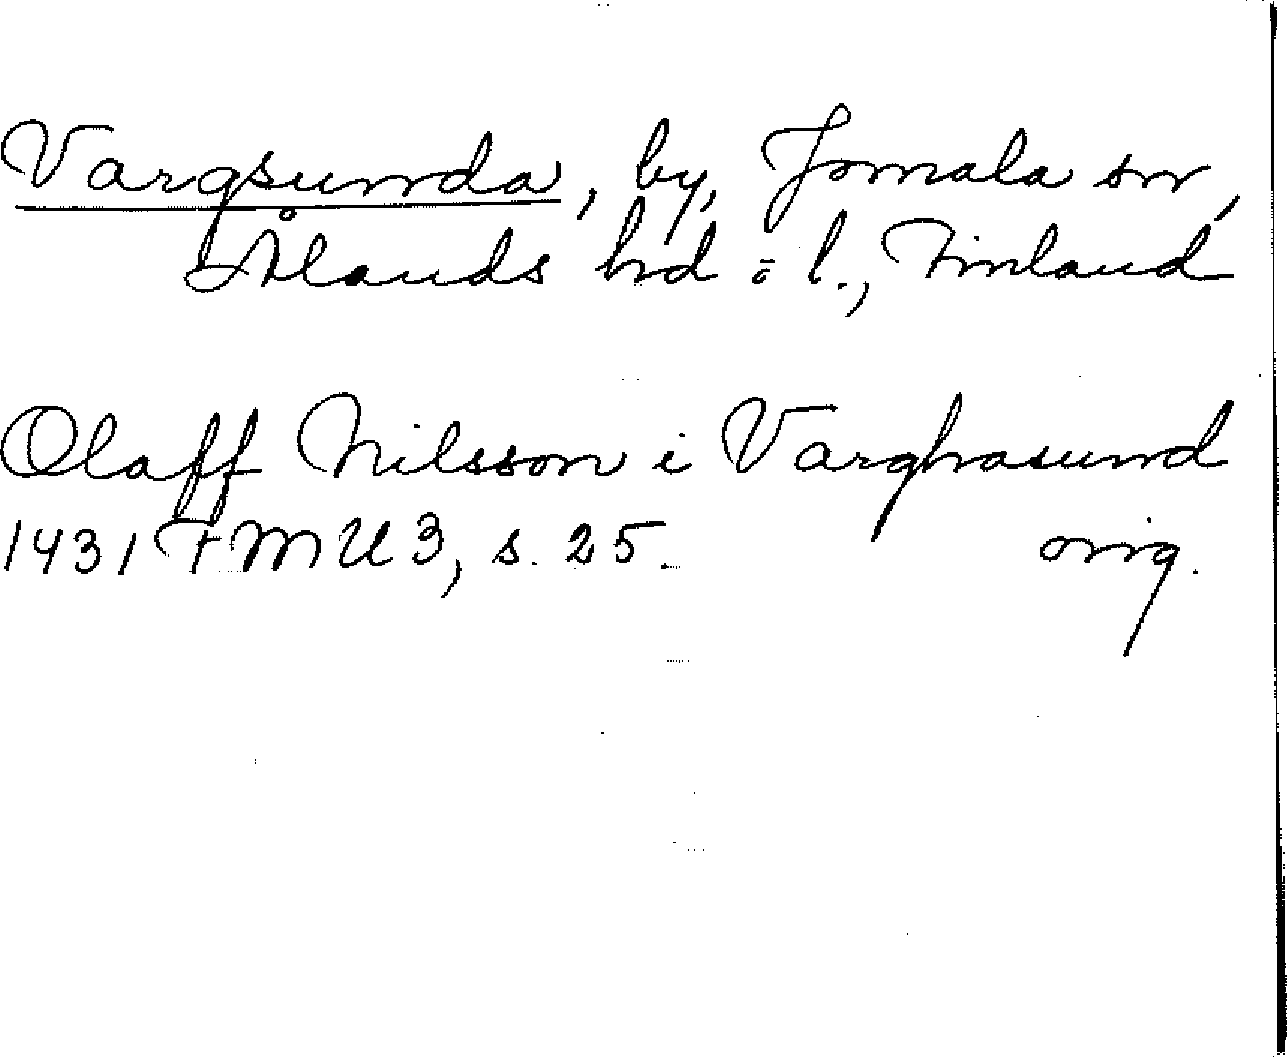 Vargsunda, by, Jomala sn,
Ålands hd o l., Finland
Olaff Nilsson i Varghasund
1431 FMU 3, s. 25. orig.